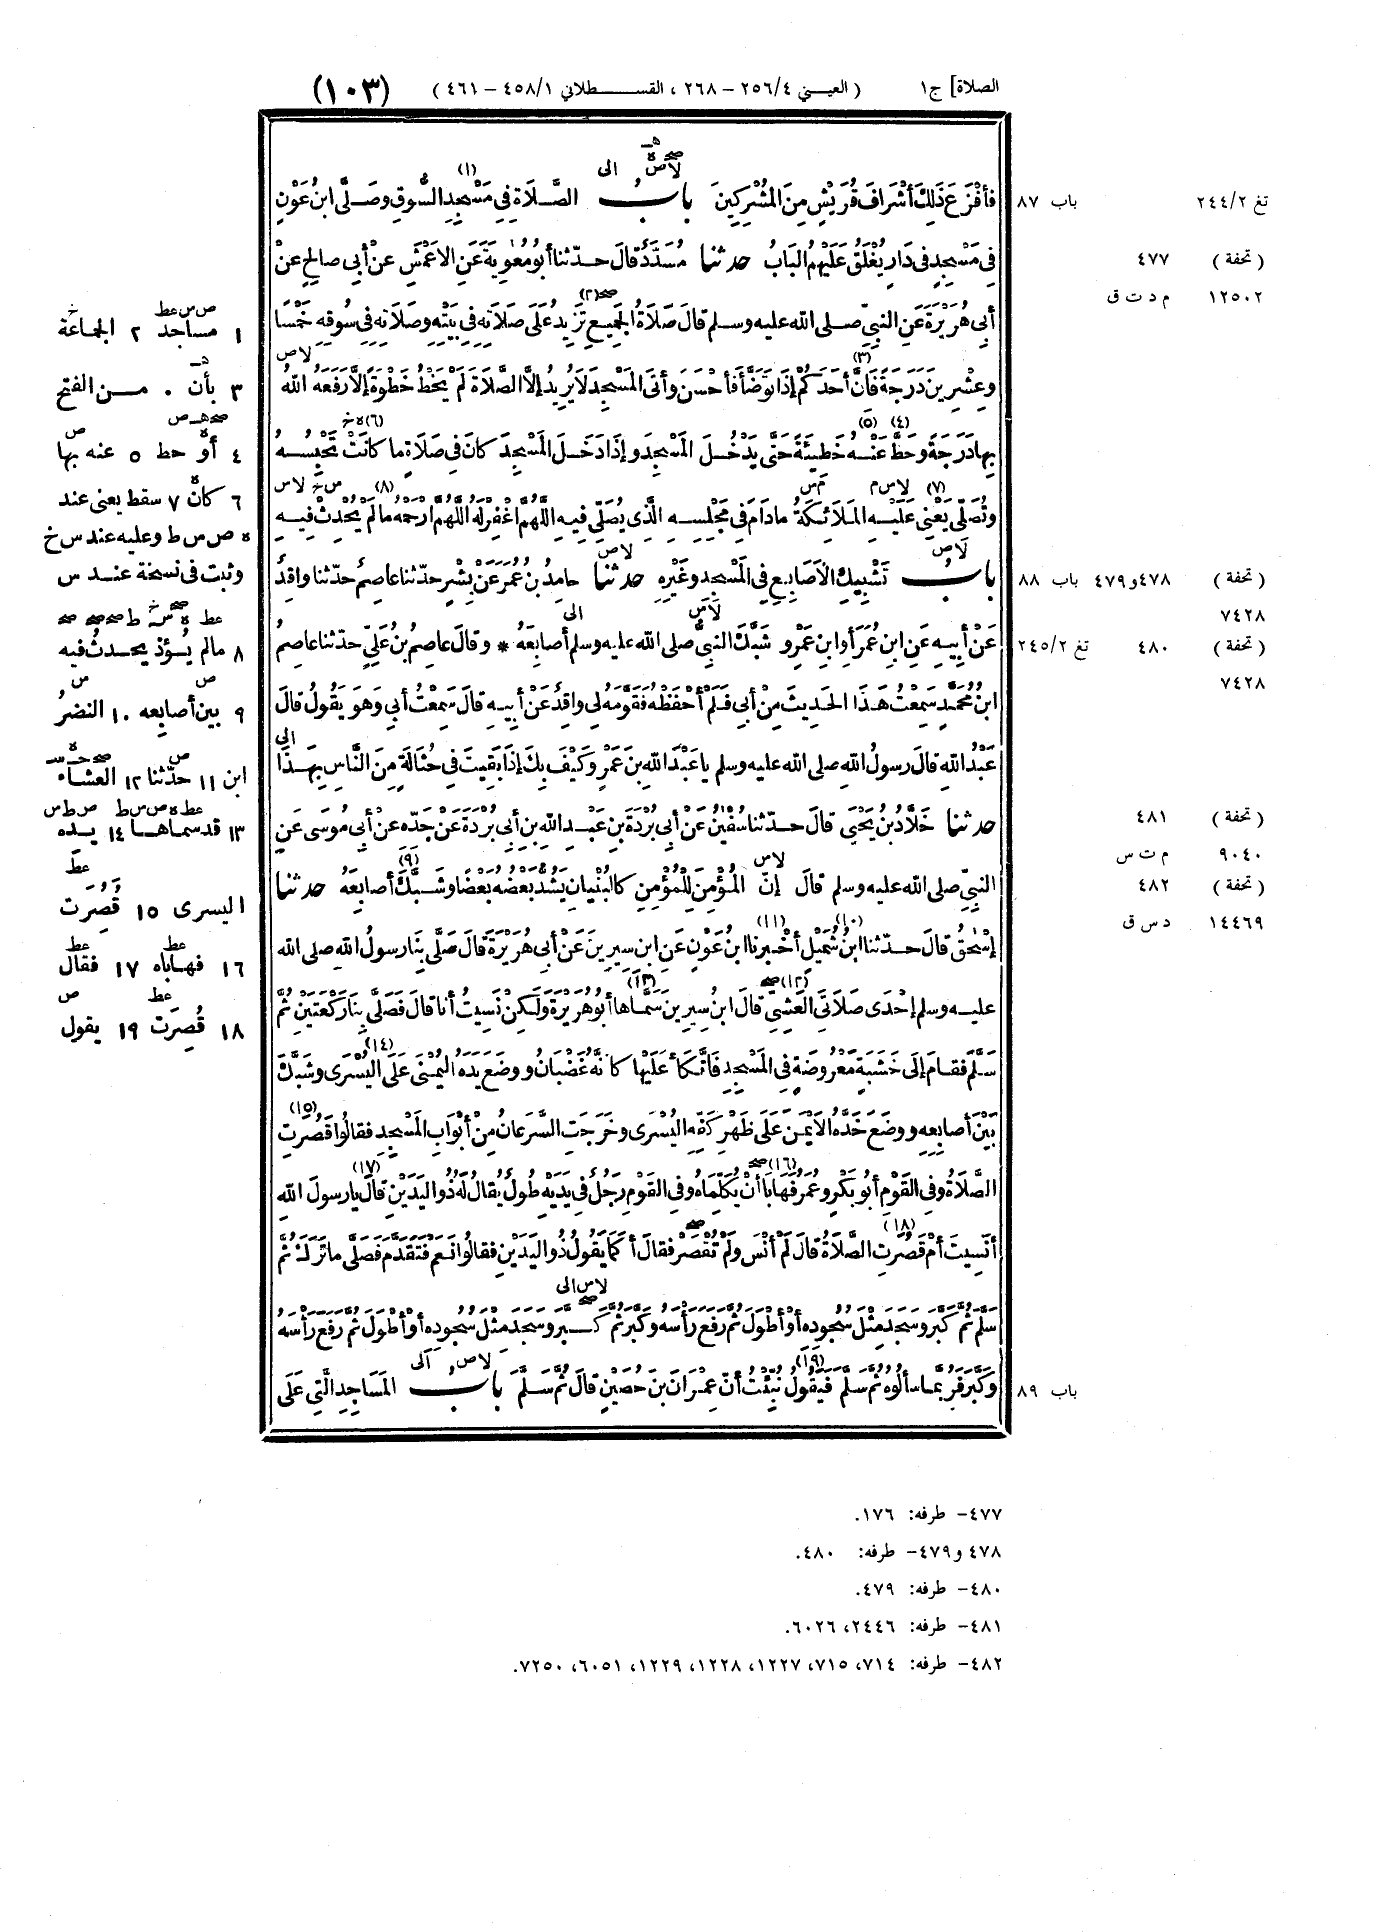 الصلاة] ج١ ( العيني ٢٥٦/٤ – ٢٦٨ ، القسطلاني ٤٥٨/١ – ٤٦١ ) (١٠٣)
فَأَفْزَعَ ذَلِكَ أَشْرَافَ قُرَيْشٍ مِنَ المُشْرِكِينَ بابُ الصَّلَاةِ فِي مَسْجِدِ السُّوقِ وَصَلَّى ابنُ عَوْنٍ
فِي مَسْجِدٍ فِي دَارٍ يُغْلَقُ عَلَيْهِمُ البَابُ حدثنا مُسَدَّدٌ قالَ حدثنا أبُو مُعٰوِيَةَ عَنِ الأَعْمَشِ عَنْ أبِي صالِحٍ عَنْ
أبِي هُرَيْرَةَ عَنِ النبيِّ صلى الله عليه وسلم قالَ صَلَاةُ الجَمِيعِ تَزِيدُ عَلَى صَلَاتِهِ فِي بَيْتِهِ وصَلَاتِهِ فِي سُوقِهِ خَمْسًا
وعِشْرِينَ دَرَجَةً فَإِنَّ أحَدَكُمْ إذَا تَوَضَّأَ فَأَحْسَنَ وأتَى المَسْجِدَ لَا يُرِيدُ إلَّا الصَّلَاةَ لَمْ يَخْطُ خَطْوَةً إلَّا رَفَعَهُ اللهُ
بِها دَرَجَةً وحَطَّ عَنْهُ خَطِيئَةً حَتَّى يَدْخُلَ المَسْجِدَ وإذَا دَخَلَ المَسْجِدَ كانَ فِي صَلَاةٍ ما كانَتْ تَحْبِسُهُ
وتُصَلِّي يَعْنِي عَلَيْهِ المَلَائِكَةُ مادَامَ فِي مَجْلِسِهِ الَّذِي يُصَلِّي فِيهِ اللَّهُمَّ اغْفِرْ لَهُ اللَّهُمَّ ارْحَمْهُ مالَمْ يُحْدِثْ فِيهِ
بابُ تَشْبِيكِ الأَصَابِعِ فِي المَسْجِدِ وغَيْرِهِ حدثنا حامِدُ بنُ عُمَرَ عَنْ بِشْرٍ حدّثنا عاصِمٌ حدّثنا واقِدٌ
عَنْ أبِيهِ عَنِ ابنِ عُمَرَ أو ابنِ عَمْرٍو شَبَّكَ النبيُّ صلى الله عليه وسلم أصابِعَهُ * وقالَ عاصِمُ بنُ عَلِيٍّ حدّثنا عاصِمُ
ابنُ مُحَمَّدٍ سَمِعْتُ هَذَا الحَدِيثَ مِنْ أبِي فَلَمْ أحْفَظْهُ فَقَوَّمَهُ لِي واقِدٌ عَنْ أبِيهِ قالَ سَمِعْتُ أبِي وهُوَ يَقُولُ قالَ
عَبْدُ اللهِ قالَ رسولُ اللهِ صلى الله عليه وسلم يا عَبْدَ اللهِ بنَ عَمْرٍو كَيْفَ بِكَ إذَا بَقِيتَ فِي حُثَالَةٍ مِنَ النَّاسِ بِهَذَا
حدثنا خَلَّادُ بنُ يَحْيَى قالَ حدثنا سُفْيٰنُ عَنْ أبِي بُرْدَةَ بنِ عَبْدِ اللهِ بنِ أبِي بُرْدَةَ عَنْ جَدِّهِ عَنْ أبِي مُوسَى عَنِ
النبيِّ صلى الله عليه وسلم قالَ إنَّ المُؤْمِنَ لِلْمُؤْمِنِ كالبُنْيانِ يَشُدُّ بَعْضُهُ بَعْضًا وشَبَّكَ أصابِعَهُ حدثنا
إسْحٰقُ قالَ حدثنا ابنُ شُمَيْلٍ أخبرنا ابنُ عَوْنٍ عَنِ ابنِ سِيرِينَ عَنْ أبِي هُرَيْرَةَ قالَ صَلَّى بِنَا رسولُ اللهِ صلى الله
عليه وسلم إحْدَى صَلَاتَيِ العَشِيِّ قالَ ابنُ سِيرِينَ سَمَّاها أبُو هُرَيْرَةَ ولَكِنْ نَسِيتُ أنا قالَ فَصَلَّى بِنَا رَكْعَتَيْنِ ثُمَّ
سَلَّمَ فَقامَ إلَى خَشَبَةٍ مَعْرُوضَةٍ فِي المَسْجِدِ فَاتَّكَأَ عَلَيْها كَأنَّهُ غَضْبَانُ ووَضَعَ يَدَهُ اليُمْنَى عَلَى اليُسْرَى وشَبَّكَ
بَيْنَ أصابِعِهِ ووَضَعَ خَدَّهُ الأَيْمَنَ عَلَى ظَهْرِ كَفِّهِ اليُسْرَى وخَرَجَتِ السَّرَعانُ مِنْ أبْوَابِ المَسْجِدِ فقالُوا قَصُرَتِ
الصَّلَاةُ وفِي القَوْمِ أبُو بَكْرٍ وعُمَرُ فَهَابَا أنْ يُكَلِّمَاهُ وفِي القَوْمِ رَجُلٌ فِي يَدَيْهِ طُولٌ يُقالُ لَهُ ذُو اليَدَيْنِ قالَ يا رسولَ اللهِ
أنَسِيتَ أمْ قَصُرَتِ الصَّلَاةُ قالَ لَمْ أنْسَ ولَمْ تُقْصَرْ فقالَ أكَمَا يَقُولُ ذُو اليَدَيْنِ فقالُوا نَعَمْ فَتَقَدَّمَ فَصَلَّى ما تَرَكَ ثُمَّ
سَلَّمَ ثُمَّ كَبَّرَ وسَجَدَ مِثْلَ سُجُودِهِ أوْ أطْوَلَ ثُمَّ رَفَعَ رَأْسَهُ وكَبَّرَ ثُمَّ كَبَّرَ وسَجَدَ مِثْلَ سُجُودِهِ أوْ أطْوَلَ ثُمَّ رَفَعَ رَأْسَهُ
وكَبَّرَ فَرُبَّمَا سألُوهُ ثُمَّ سَلَّمَ فَيَقُولُ نُبِّئْتُ أنَّ عِمْرَانَ بنَ حُصَيْنٍ قالَ ثُمَّ سَلَّمَ بابُ المَسَاجِدِ الَّتِي عَلَى
باب ٨٧ تغ ٢٤٤/٢
(تحفة) ٤٧٧
١٢٥٠٢ م د ت ق
(تحفة) ٤٧٨ و ٤٧٩ باب ٨٨
٧٤٢٨
(تحفة) ٤٨٠ تغ ٢٤٥/٢
٧٤٢٨
(تحفة) ٤٨١
٩٠٤٠ م ت س
(تحفة) ٤٨٢
١٤٤٦٩ د س ق
باب ٨٩
١ مساجد ٢ الجماعة
٣ بأن ٠ من الفتح
٤ أو حط ٥ عنه بها
٦ كان ٧ سقط يعنى عند
ه ص س ط وعليه عند س خ
وثبت فى نسخة عند س
٨ مالم يُؤذِ يحدث فيه
٩ بين أصابعه ١٠ النضرُ
ابن ١١ حدّثنا ١٢ العشاء
١٣ قد سماها ١٤ يده
اليسرى ١٥ قُصِرَت
١٦ فهاباه ١٧ فقال
١٨ قُصِرَت ١٩ يقول
٤٧٧– طرفه: ١٧٦.
٤٧٨ و٤٧٩– طرفه: ٤٨٠.
٤٨٠– طرفه: ٤٧٩.
٤٨١– طرفه: ٢٤٤٦، ٦٠٢٦.
٤٨٢– طرفه: ٧١٤، ٧١٥، ١٢٢٧، ١٢٢٨، ١٢٢٩، ٦٠٥١، ٧٢٥٠.